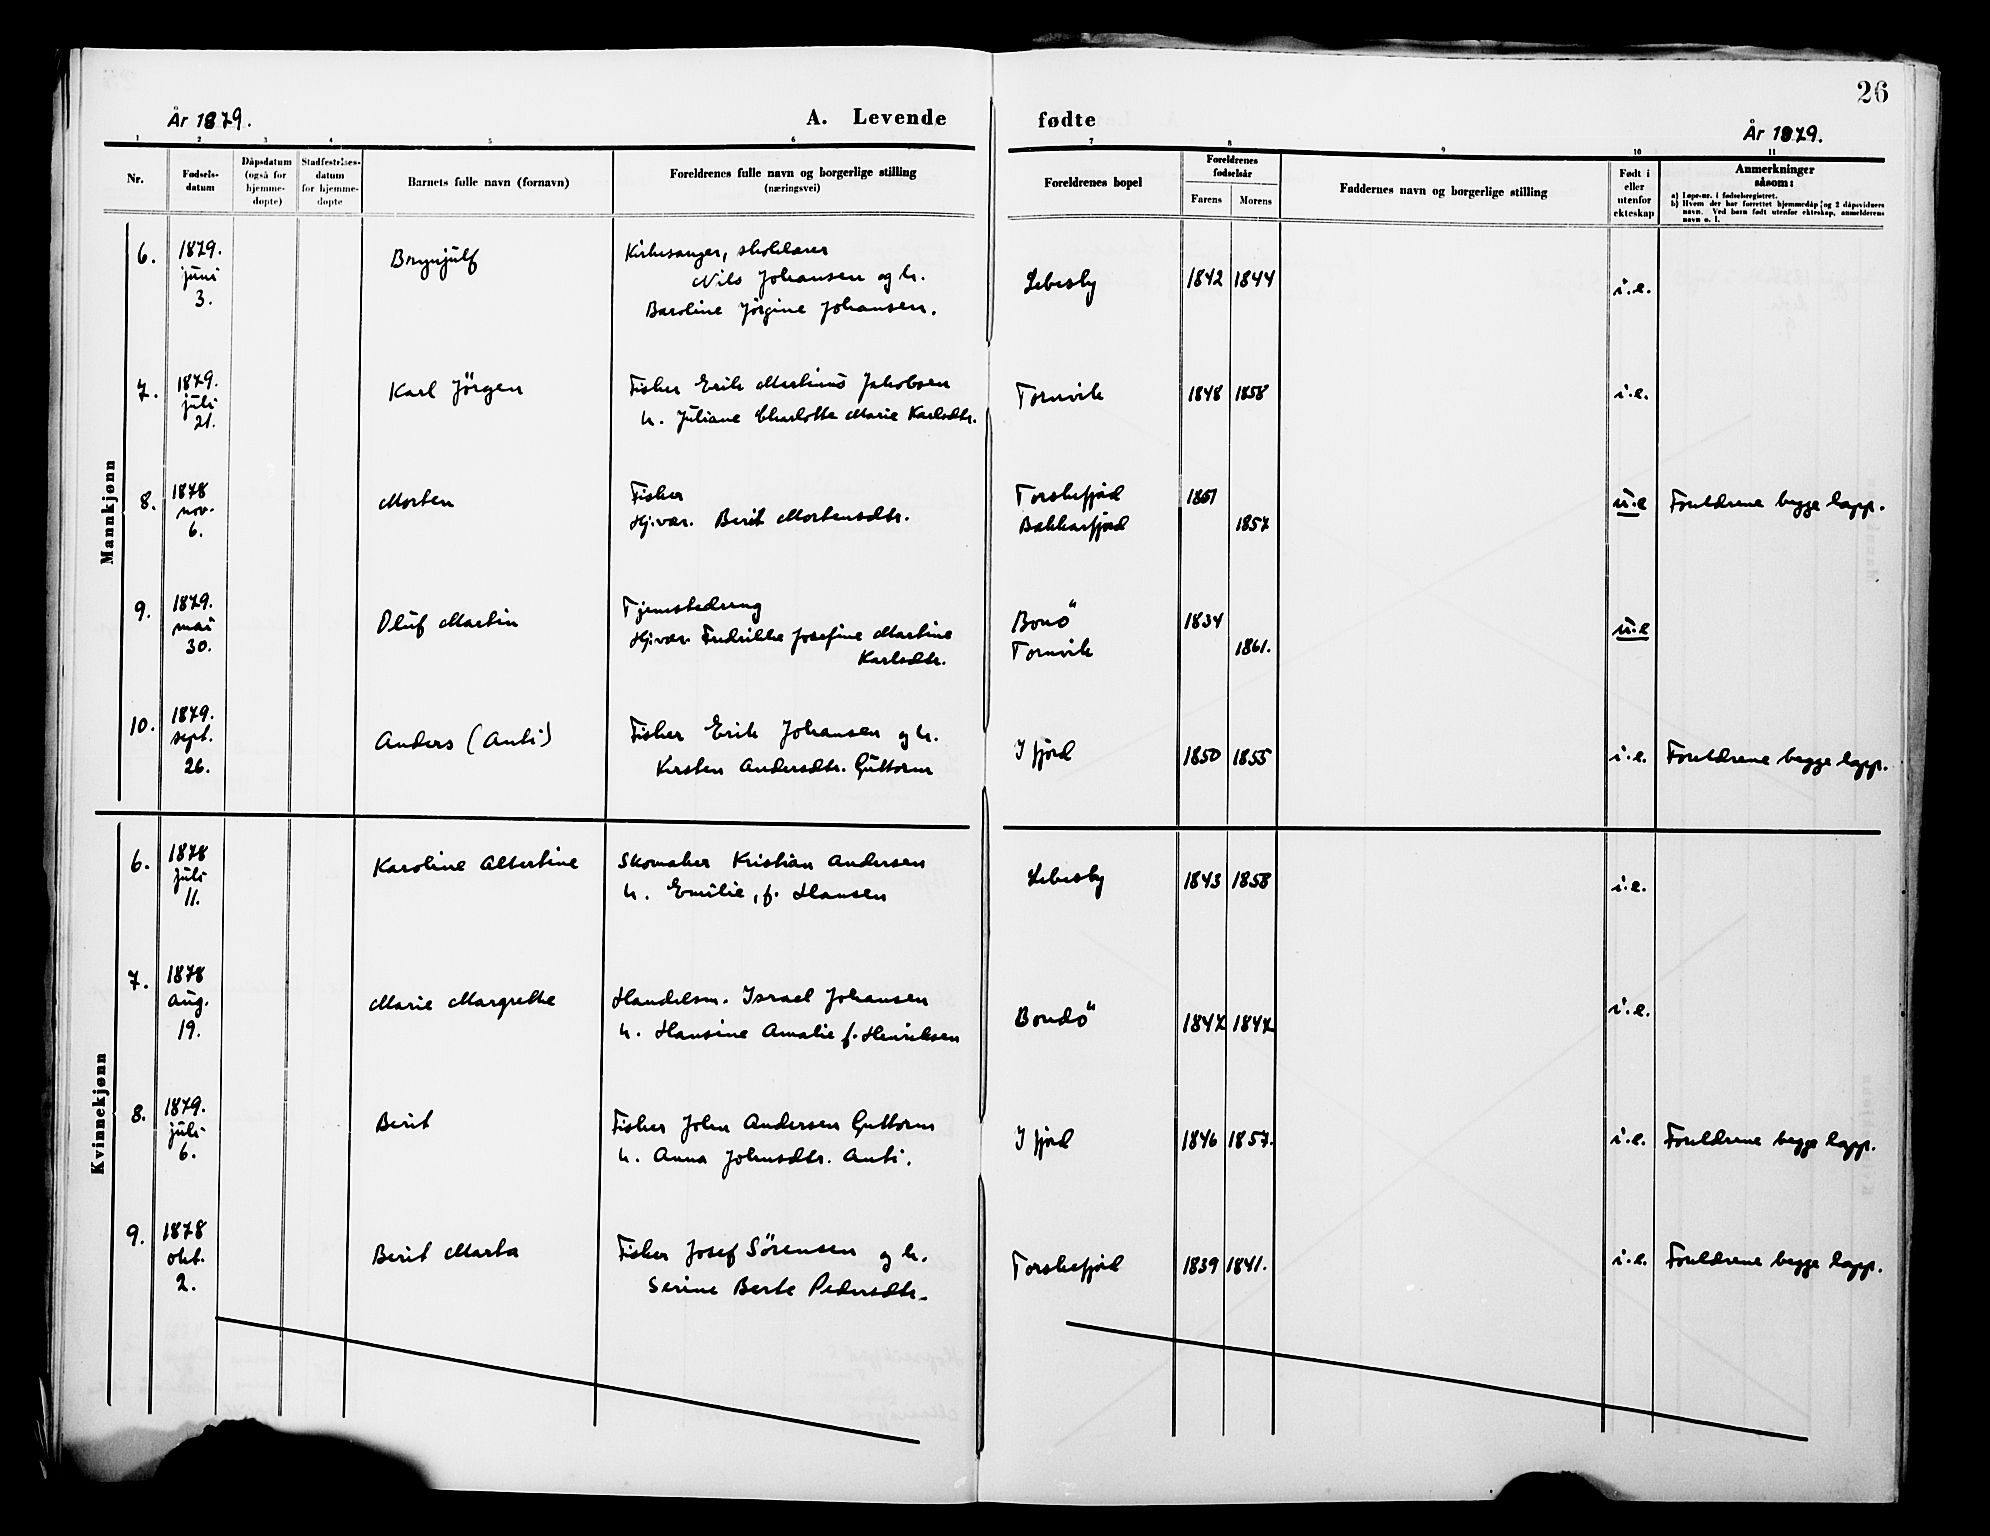 26
År 1879.
A. Levende fødte
År 1879.
1 2 3 4 5 6 7 8 9 10 11
Nr.
Fødsels-
datum
Dåpsdatum
(også for
hjemme-
døpte)
Stadfestelses-
datum
for hjemme-
døpte
Barnets fulle navn (fornavn)
Foreldrenes fulle navn og borgerlige stilling
(næringsvei)
Foreldrenes bopel
Foreldrenes
fødselsår
Farens Morens
Faddernes navn og borgerlige stilling
Født i
eller
utenfor
ekteskap
Anmerkninger
såsom:
a) Løpe-nr. i fødselsregistret.
b) Hvem der har forrettet hjemmedåp og 2 dåpsvidners
navn. Ved barn født utenfor ekteskap, anmelderens
navn o. l.
Mannkjønn
6. 1879. juni 3. Brynjulf
Kirkesanger, skolelærer
Nils Johansen og h.
Baroline Jörgine Johansen.
Lebesby 1842 1844 i.e.
7. 1879. juli 21. Karl Jörgen
Fisker Erik Martinus Jakobsen
h. Juliane Charlotte Marie Karlsdtr.
Tornvik 1848 1858 i.e.
8. 1878 nov. 6. Morten
Fisker
Hj.vær. Berit Mortensdtr.
Torskefjord 1851
Bakkarfjord 1857
u.e Foreldrene begge lapp.
9. 1879. mai 30. Oluf Martin
Tjenestedreng
Hj.vær. Fredrikke Josefine Martine
Karlsdtr.
1834
Tornvik 1861.
u.e
10. 1879. sept. 26. Anders (Anti)
Fisker Erik Johansen og h.
Kirsten Andersdtr. Guttorm
Ifjord 1850 1855 i.e. Foreldrene begge lapp.
Kvinnekjønn
6. 1878 juli 11. Karoline Albertine
Skomaker Kristian Andersen
h. Emilie, f. Hansen
Lebesby 1843 1858 i.e.
7. 1878 aug. 19. Marie Margrethe
Handelsm. Israel Johansen
h. Hansine Amalie f. Henriksen
1847 1847 i.e.
8. 1879. juli 6. Berit
Fisker John Andersen Guttorm
h. Anna Johnsdtr. Anti.
Ifjord 1846 1857. i.e. Foreldrene begge lapp.
9. 1878 okt. 2. Berit Marta
Fisker Josef Sörensen og h.
Serine Berte Pedersdtr.
Torskefjord 1839 1841. i.e. Foreldrene begge lapp.